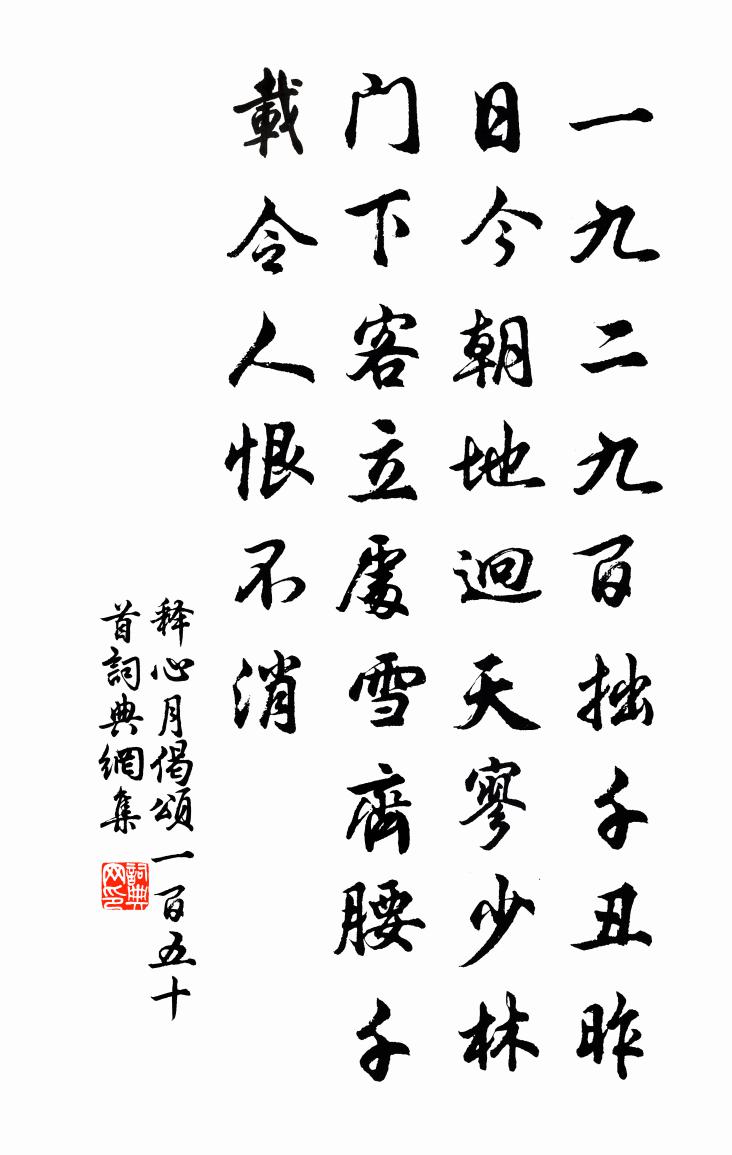 一九二九百拙千丑昨
日今朝地迥天寥少林
门下客立處雪齊腰千
載令人恨不消
释心月偈頌一百五十
首詞典網集
詞典网印